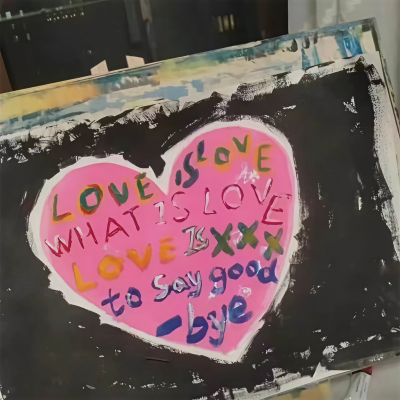 LOVE is LOVE
WHAT IS LOVE
LOVE Is XXX
to Say good
-bye